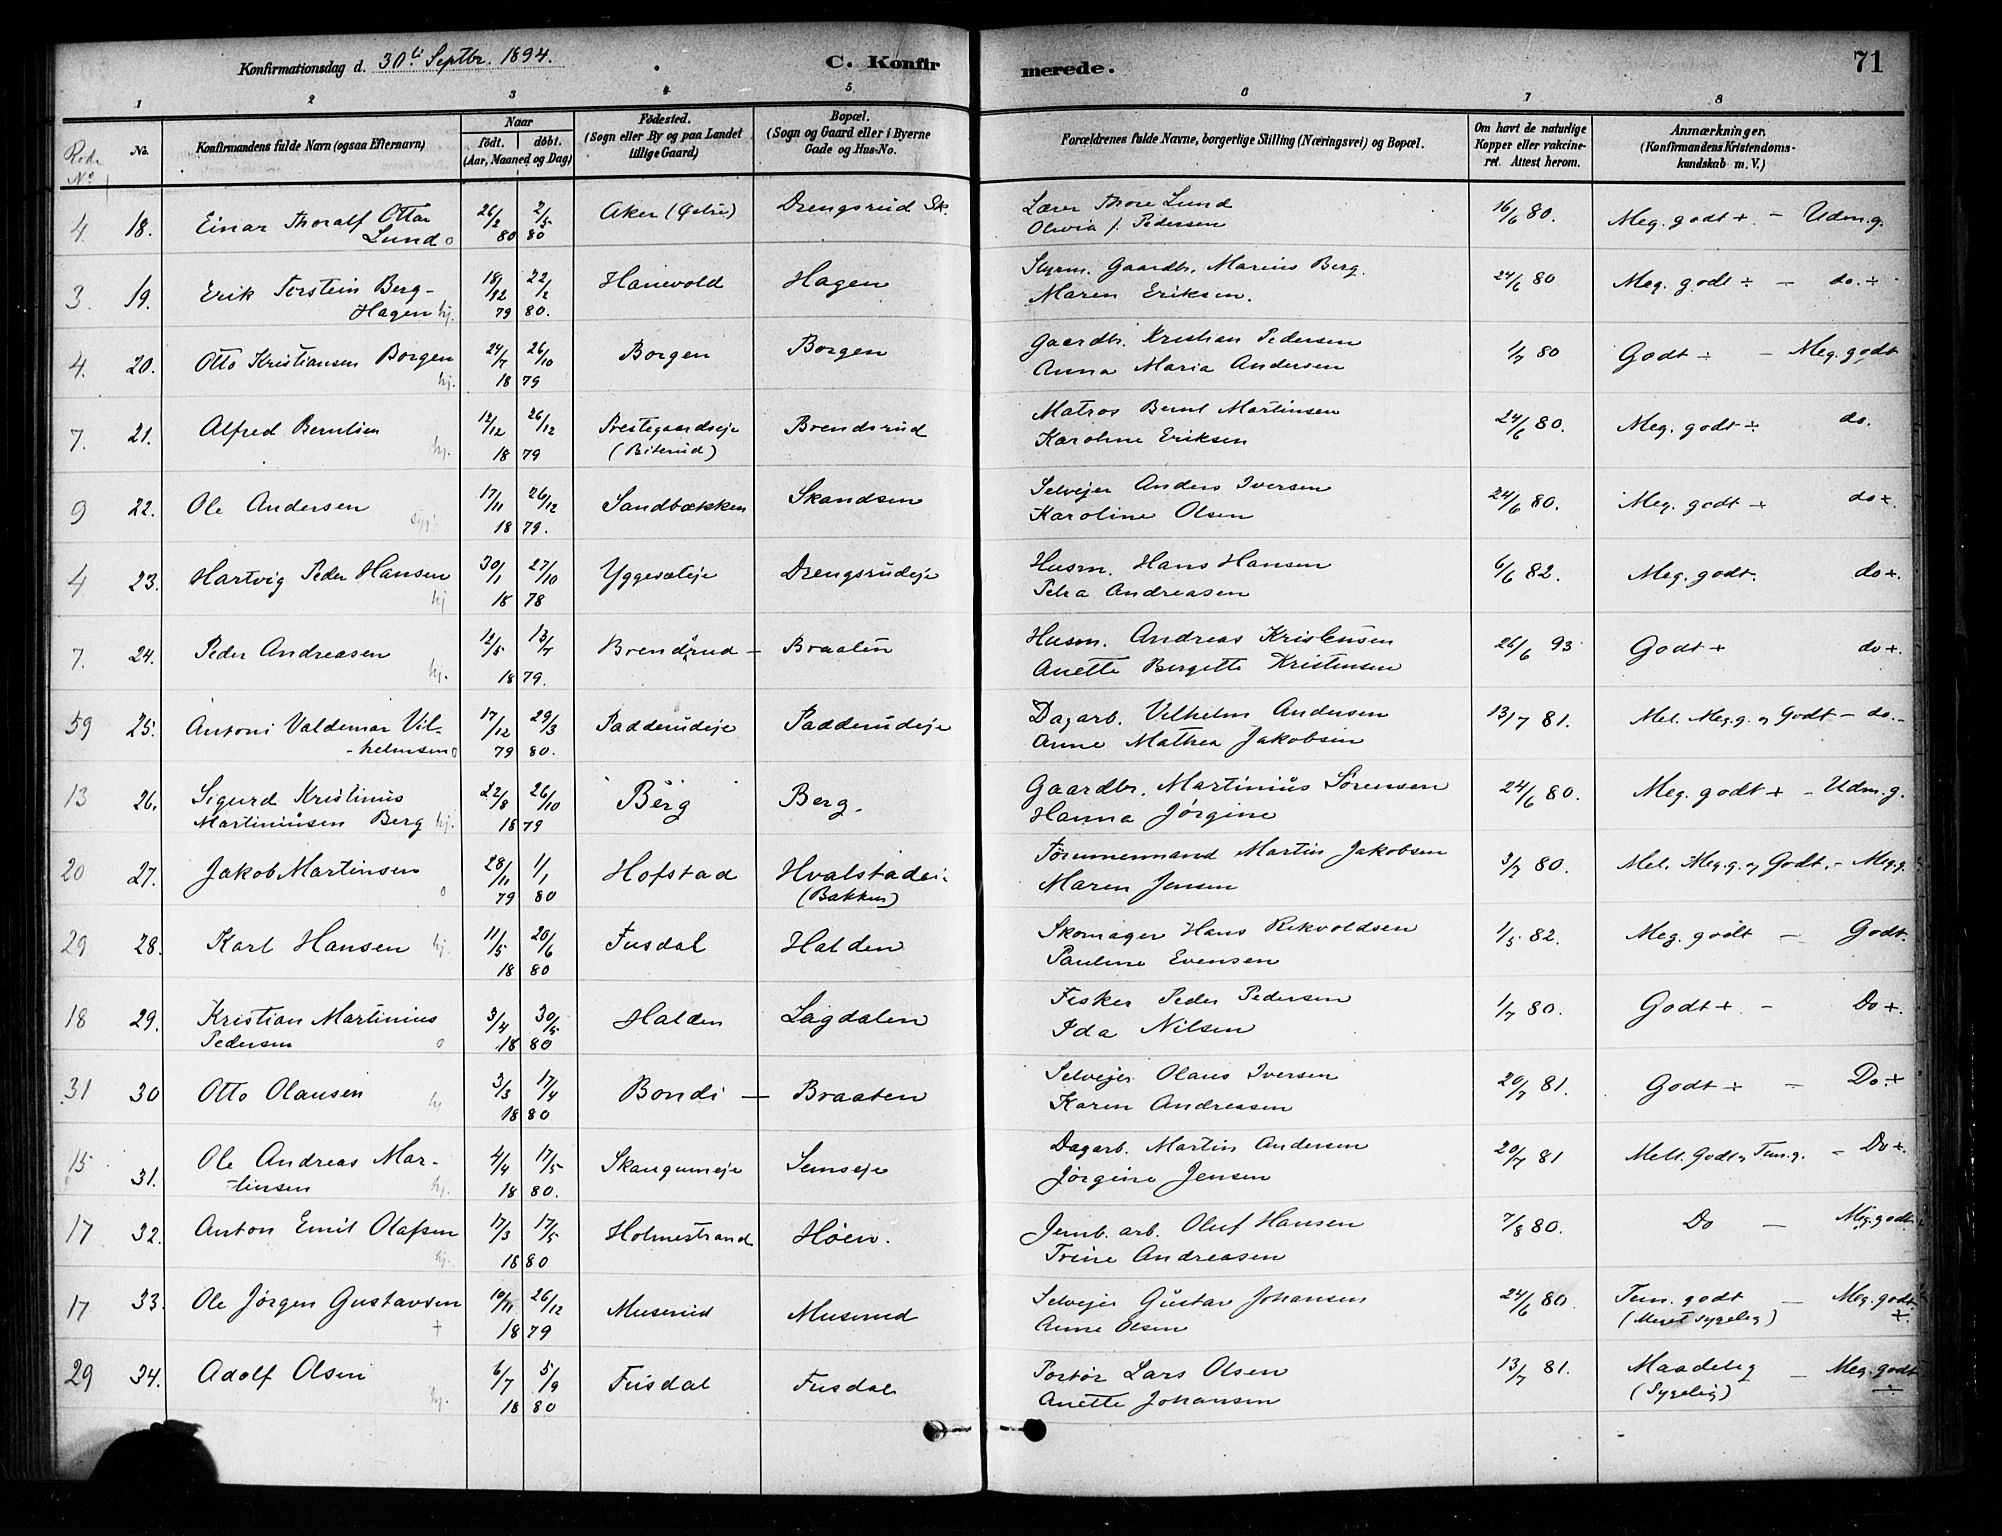 Konfirmationsdag d. 30te Septbr. 1894.
C. Konfir
merede.
71
1 2 3 4 5 6 7 8
Rode No
No.
Konfirmandens fulde Navn (ogsaa Efternavn)
Naar
født. døbt.
(Aar, Maaned og Dag)
Fødested.
(Sogn eller By og paa Landet
tillige Gaard)
Bopæl.
(Sogn og Gaard eller i Byerne
Gade og Hus-No.
Forældrenes fulde Navne, borgerlige Stilling (Næringsvei) og Bopæl.
Om havt de naturlige
Kopper eller vakcine-
ret. Attest herom.
Anmærkninger.
(Konfirmandens Kristendoms-
kundskab m. V.)
4. 18. Einar Thoralf Ottar 26/2 2/5 Aker (Østre) Drengsrud Sk. Lærer Thore Lund 16/6 80. Meg. godt + - Udm. g.
Lund o 80 80 Olivia f. Pedersen
3. 19. Erik Torstein Berg- 18/12 22/2 Hanevold Hagen Styrm. Gaardbr. Marius Berg. 24/6 80 Meg. godt ÷ - do. ÷
Hagen hj. 79 80. Maren Eriksen.
4. 20. Otto Kristiansen Borgen 24/7 26/10 Borgen Borgen Gaardbr. Kristian Pedersen 1/7 80 Godt ÷ - Meg. godt
hj. 18 79 Anna Maria Andersen
7. 21. Alfred Berntsen 12/12 26/12 Prestegaardseje Brendsrud Matros Bernt Martinsen 24/6 80. Meg. godt ÷ do.
hj. 18 79 (Biterud) Karoline Eriksen
9 22. Ole Andersen 17/11 26/12 Sandbækken Skandsen Selvejer Anders Iversen 24/6 80. Meg. godt + do +.
syg. 18 79. Karoline Olsen
4 23. Hartvig Peder Hansen 30/1 27/10 Yggesæteje Drengsrudeje Husm. Hans Hansen 6/6 82. Meg. godt. do +.
hj 18 78 Petra Andreasen
7. 24. Peder Andreasen 12/5 13/7 Brendsrud - Braaten Husm. Andreas Kristensen 26/6 93 Godt + do +.
hj. 18 79. Anette Bergette Kristensen
59 25. Antoni Valdemar Vil- 17/12 29/3 Padderudeje Padderudeje Dagarb. Vilhelm Andersen 13/7 81. Mel. Meg. g. og Godt - do. -
-helmsen o 79 80. Anne Mathea Jakobsen
13 26. Sigurd Kristinus 22/8 26/10 Berg Berg. Gaardbr. Martinius Sørensen 24/6 80. Meg. godt + - Udm. g.
Martiniusen Berg hj. 18 79 Hanna Jørgine
20 27. Jakob Martinsen 28/11 1/1 Hofstad Hvalstadei. Tømmermand Martin Jakobsen 3/7 80. Mel. Meg. g. og Godt. - Meg. g.
o 79 80 (Bakken) Maren Jensen
29 28. Karl Hansen hj. 11/5 20/6 Fusdal Halden Skomager Hans Rikvoldsen 1/5 82. Meg. godt - Godt.
18 80 Pauline Evensen
18 29. Kristian Martinius 3/4 30/5 Halden Lagdalen Fisker Peder Pedersen 1/7 80. Godt + - Do +.
Pedersen o 18 80 Ida Nilsen
31 30 Otto Olausen 3/3 17/4 Bondi - Braaten Selvejer Olaus Iversen 20/7 81. Godt + - Do. +
hj 18 80 Karen Andreasen
15 31. Ole Andreas Mar- 4/4 17/5 Skaugumeje Semseje Dagarb. Martin Andersen 20/7 81 Mell. Godt og Tem. g. - Do +.
tinsen hj. 18 80. Jørgine Jensen
17 32. Anton Emil Olafsen 17/3 17/5 Holmestrand Høen. Jernb. arb. Oluf Hansen 7/8 80. Do - Meg. godt.
hj. 18 80 Trine Andreasen
17 33. Ole Jørgen Gustavsen 10/11 26/12 Muserud Muserud Selvejer Gustav Johansen 24/6 80. Tem. godt - Meg. godt
+ 18 79 Anne Olsen (Meget sygelig) +.
29 34. Adolf Olsen 6/7 5/9 Fusdal Fusdal Portør Lars Olsen 13/7 81. Maadelig - Meg. godt
hj. 18 80 Anette Johansen (Sygelig) ÷